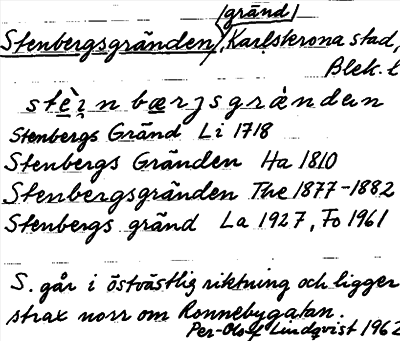 (gränd)
Stenbergsgränden, Karlskrona stad,
Blek. l
stèi̯n bærjsgrànden
Stenbergs Gränd Li 1718
Stenbergs Gränden Ha 1810
Stenbergsgränden The 1877-1882
Stenbergs gränd La 1927, Fo 1961
S. går i östvästlig riktning och ligger
strax norr om Ronnebygatan.
Per-Olof Lindqvist 1962